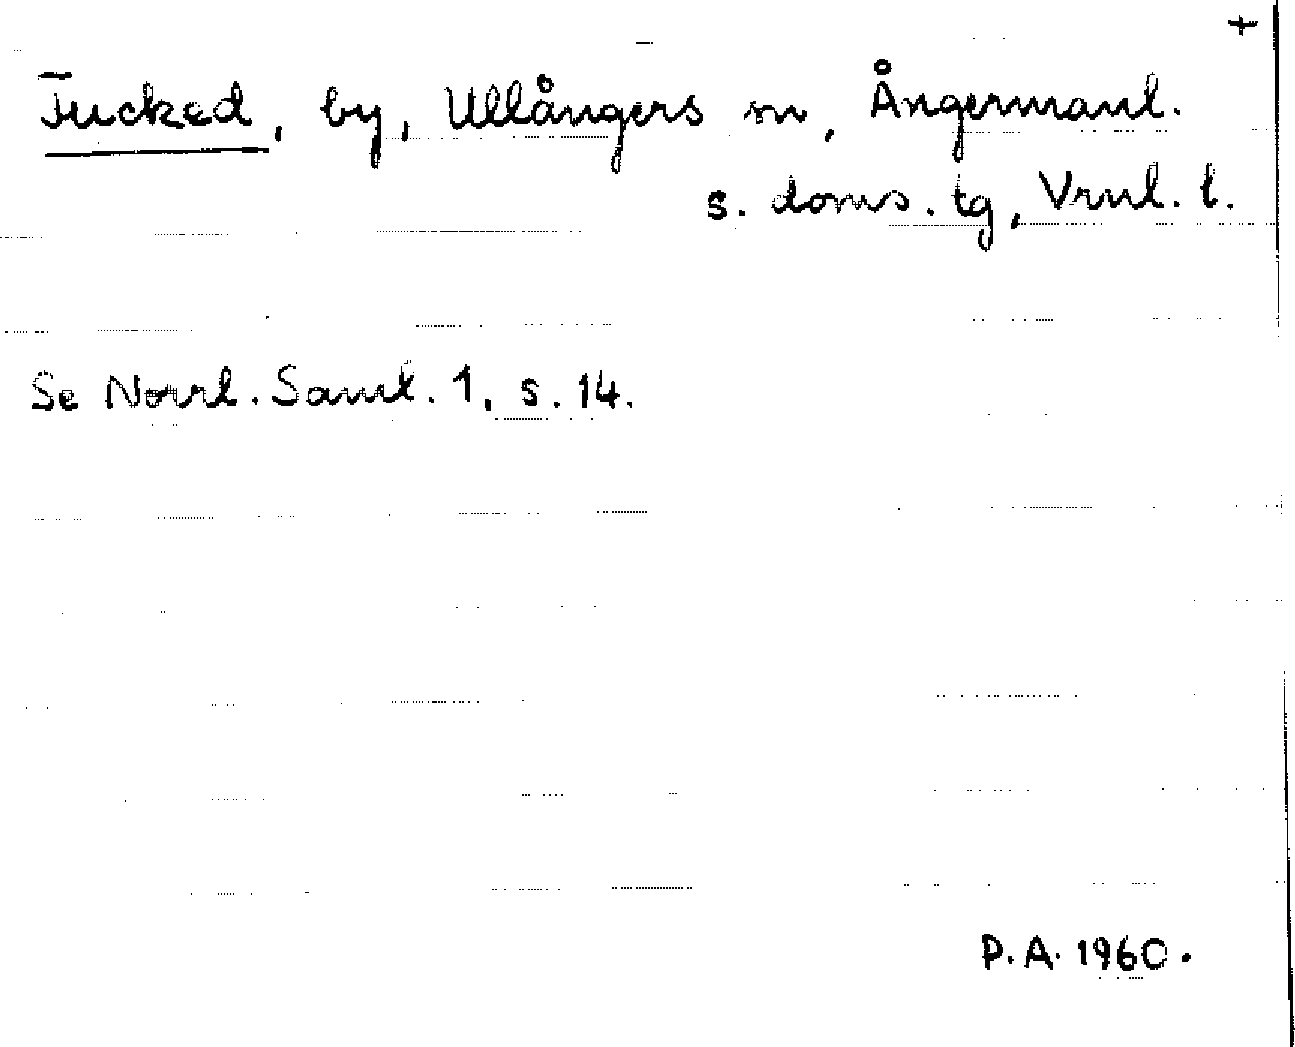 +
Jucked, by, Ullångers sn, Ångermanl.
s. doms. tg, Vrnl. l.
Se Norrl. Saml. 1, s. 14.
P.A. 1960.